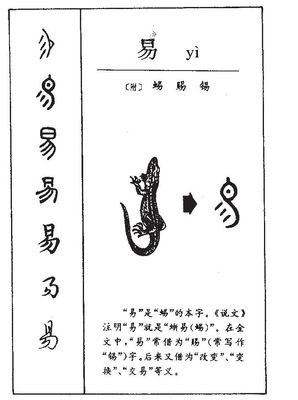 易 yì
〔附〕 蜴 赐 锡
“易”是“蜴”的本字。《说文》
注明“易”就是“蜥易(蜴)”。在金
文中，“易”常借为“赐”(常写作
“锡”)字。后来又借为“改变”、“变
换”、“交易”等义。